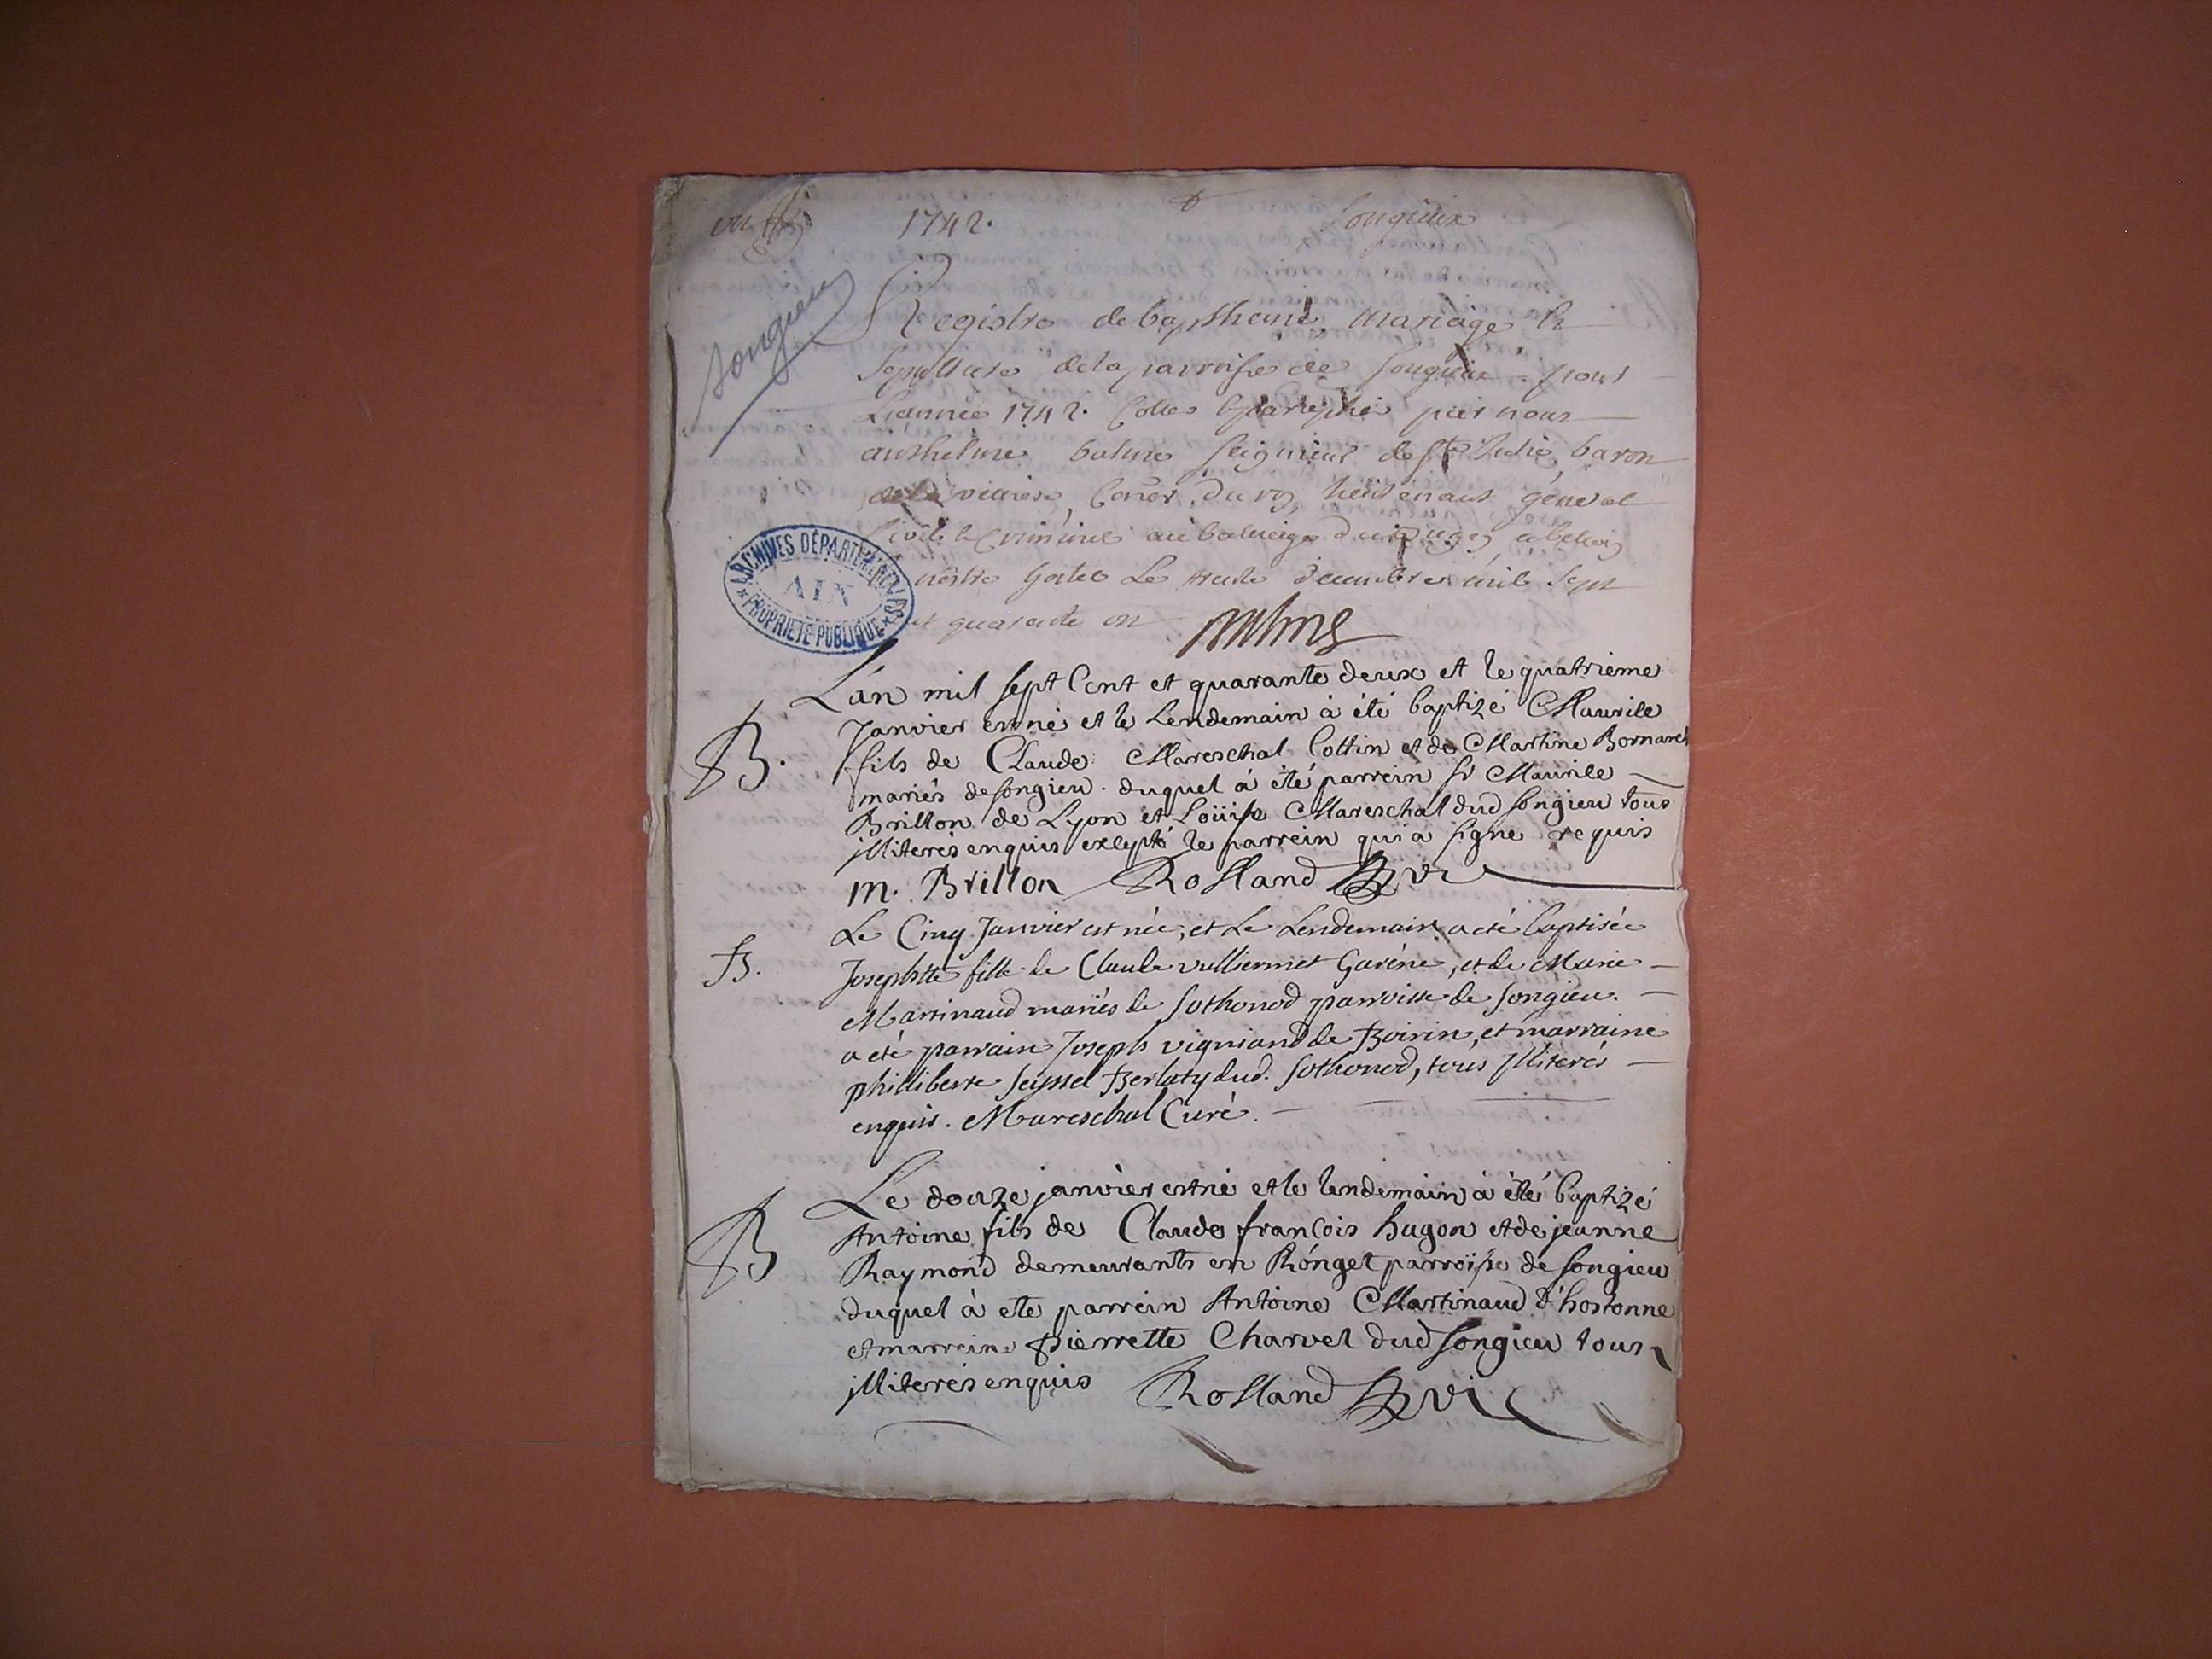 1742.
Songieux
songieu
Registre de baptheme, mariage &
Sepulture de la parroisse de Songieux pour
L'année 1742. Cotté & paraphé par nous
anthelme balme seigneur de Ste Julie, baron
Coner. du roy, lieutenant géneral
Civil & Criminel au bailliage du Bugey a belley
nostre hostel Le trente decembre mil sept
et quarante un
ARCHIVES DÉPARTEMENTALES
AIN
PROPRIÉTÉ PUBLIQUE
L'an mil sept Cent et quarante deux et le quatrieme
Janvier est né et le Lendemain à été baptizé Maurile
B.
fils de Claude Mareschal Cottin et de Martine Bornaret
mariés de songieu. duquel à été parrein sr Maurile
Brillon de Lyon et Loüise Mareschal dud songieu tous
illiterés enquis excepté le parrein qui a signe requis
m. Brillon Rolland vic
Le Cinq Janvier est née, et Le Lendemain a eté baptisée
B.
Josephtte fille de Claude vulliermet Garine, et de Marie
Martinaud mariés de Sothonod parroisse de songieu.
a eté parrain Joseph vigniand de Boirin, et marraine
philliberte seyssel Berlaty dud. Sothonod, tous Illiterés
enquis. Mareschal Curé.
Le douze janvier est né et le lendemain à été baptizé
B
Antoine fils de Claude françois hugon et de jeanne
Raymond demeurants en Rónget parroisse de songieu
duquel à eté parrein Antoine Martinaud d'hostonne
et marreine pierrette Charvet dud songieu tous
illiterés enquis Rolland vic